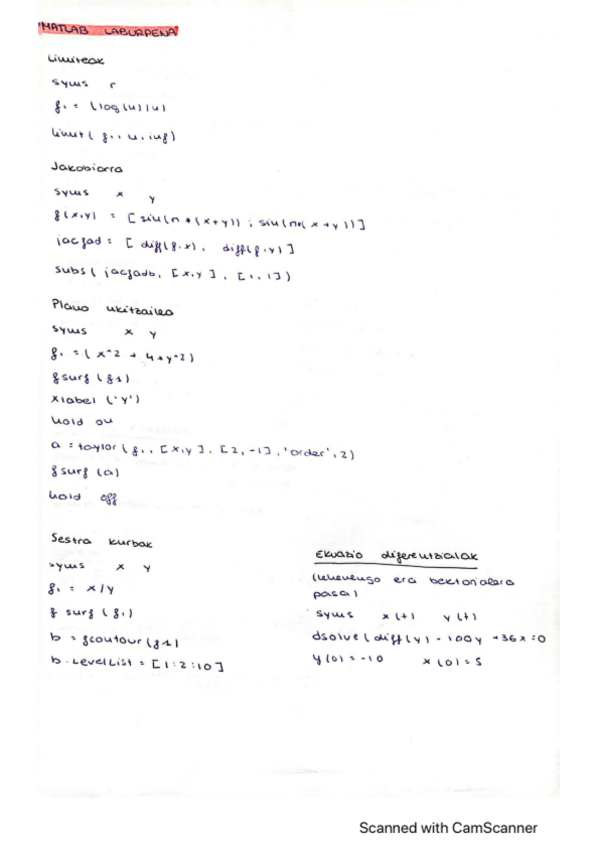 MATLAB LABURPENA
Limiteak
syms r
f1 = (log(u)/u)
limit( f1, u, inf)
Jakobiarra
syms x y
f(x,y) = [ sin(n*(x+y)) ; sin(n*(x+y))]
jacfad = [ diff(f,x), diff(f,y)]
subs( jacfado, [x,y], [1,1])
Plano ukitzailea
syms x y
f1 = (x^2 + 4*y^2)
fsurf (f1)
xlabel ('Y')
hold on
a = taylor (f1, [x,y], [2,-1], 'order', 2)
fsurf (a)
hold off
Sestra kurbak
syms x y
f1 = x/y
fsurf (f1)
b = fcontour(f1)
b.LevelList = [1:2:10]
Ekuazio diferentzialak
(lehenengo era bektorialera
pasa)
syms x(t) y(t)
dsolve(diff(y) - 100y +36x=0
y(0) = -10 x(0) = 5
Scanned with CamScanner